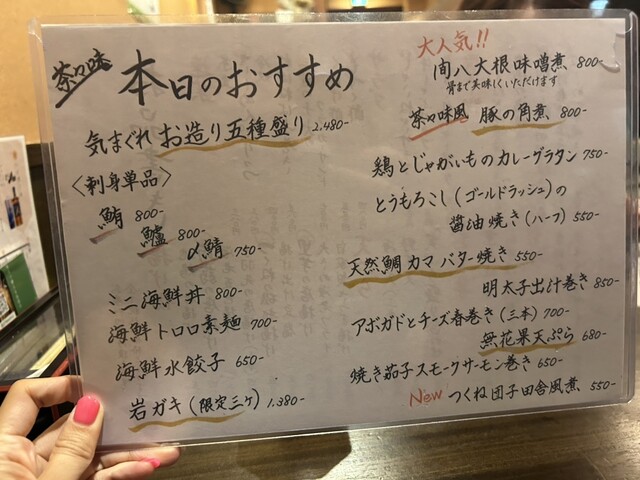 茶々味
本日のおすすめ
気まぐれ お造り五種盛り 2,480-
〈刺身単品〉
鮪 800-
鱸 800-
〆鯖 750-
ミニ海鮮丼 800-
海鮮トロロ素麺 700-
海鮮水餃子 650-
岩ガキ(限定三ケ) 1,380-
大人気!!
間八大根味噌煮 800-
骨まで美味しくいただけます
茶々味風 豚の角煮 800-
鶏とじゃがいものカレーグラタン 750-
とうもろこし(ゴールドラッシュ)の
醤油焼き(ハーフ) 550-
天然鯛カマバター焼き 550-
明太子出汁巻き 850-
アボガドとチーズ春巻き(三本) 700-
無花果天ぷら 680-
焼き茄子スモークサーモン巻き 650-
New つくね団子田舎風煮 550-